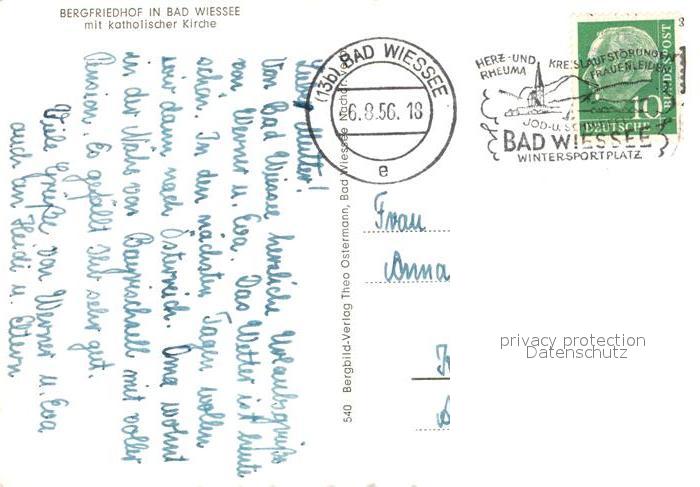 BERGFRIEDHOF IN BAD WIESSEE
mit katholischer Kirche
(13b) BAD WIESSEE
6.8.56. 18
e
HERZ- UND KREISLAUFSTÖRUNGEN
RHEUMA FRAUENLEIDEN
JOD- U.
BAD WIESSEE
WINTERSPORTPLATZ
DEUTSCHE BUNDESPOST
10
Liebe Mutter!
Von Bad Wiessee herzliche Urlaubsgrüße
von Werner u. Eva. Das Wetter ist heute
schön. In den nächsten Tagen wollen
wir dann nach Österreich. Oma wohnt
in der Nähe von Bayrischzell mit voller
Pension. Es gefällt seit sehr gut.
Viele Grüße von Werner u. Eva
auch an Heidi u. Eltern
540 Bergbild-Verlag Theo Ostermann, Bad Wiessee Nachdr. verb.
Frau
Anna
privacy protection
Datenschutz